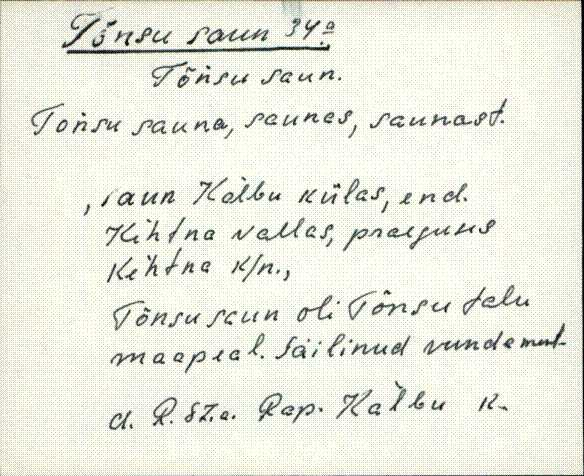 Tõnsu saun 34a
Tõńsu saun.
Tońsu sauna, saunas, saunast.
, saun Kälbu külas, end.
Kehtna vallas, praeguses
Kehtna k/n.,
Tõnsu saun oli Tõnsu talu
maapeal. Säilinud vundament
d. R. 57.a. Rap. Kälbu k.